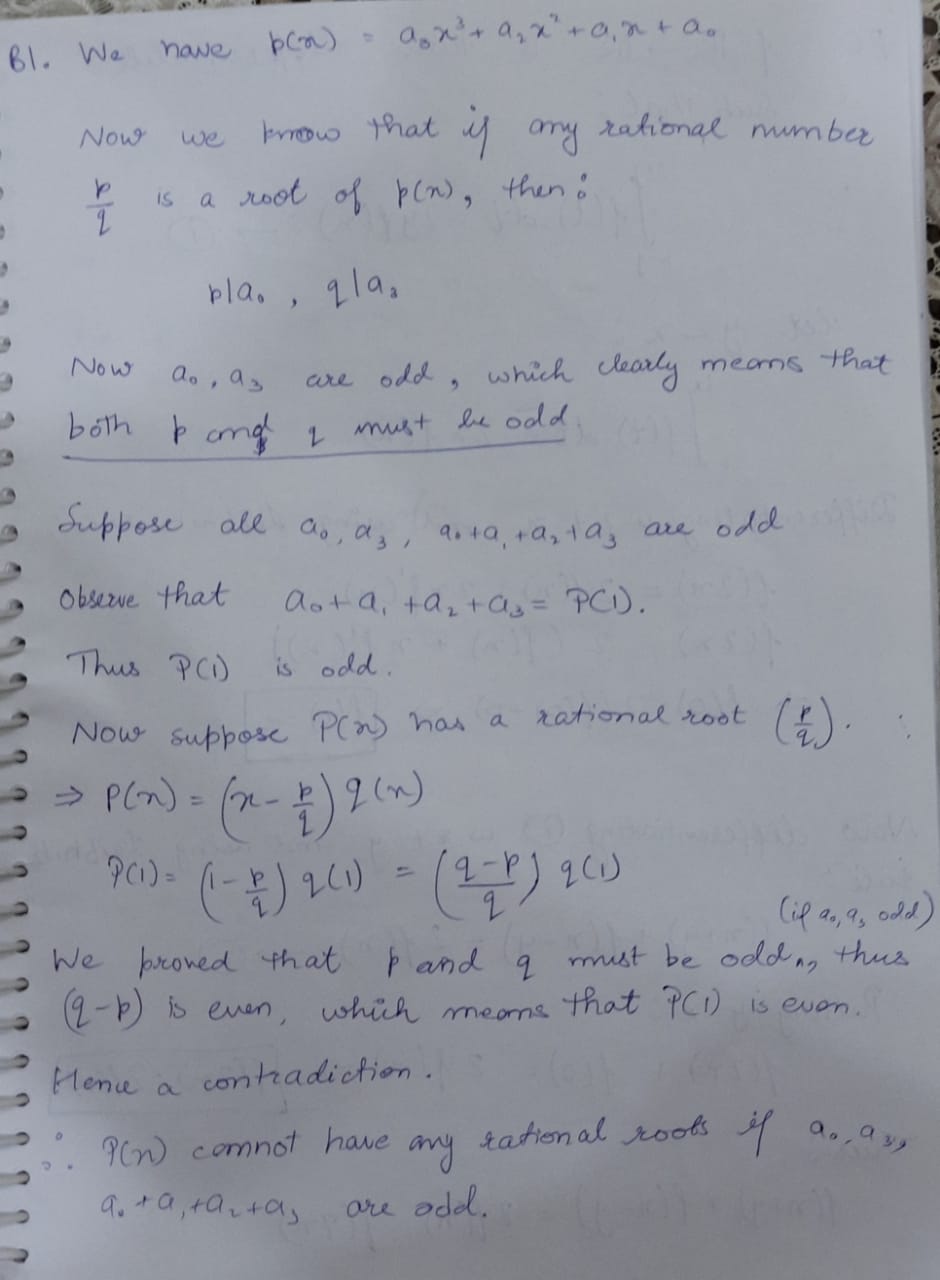 B1. We have p(x) = a₀x³ + a₂x² + a₁x + a₀
Now we know that if any rational number
p/q is a root of p(x), then:
p|a₀, q|a₃
Now a₀, a₃ are odd, which clearly means that
both p and q must be odd
Suppose all a₀, a₃, a₀+a₁+a₂+a₃ are odd
Observe that a₀+a₁+a₂+a₃ = P(1).
Thus P(1) is odd.
Now suppose P(x) has a rational root (p/q).
⇒ P(x) = (x - p/q) q(x)
P(1) = (1 - p/q) q(1) = ((q-p)/q) q(1)
(if a₀, a₃ odd)
We proved that p and q must be odd ^, thus
(q-p) is even, which means that P(1) is even.
Hence a contradiction.
∴ P(x) cannot have any rational roots if a₀, a₃,
a₀+a₁+a₂+a₃ are odd.